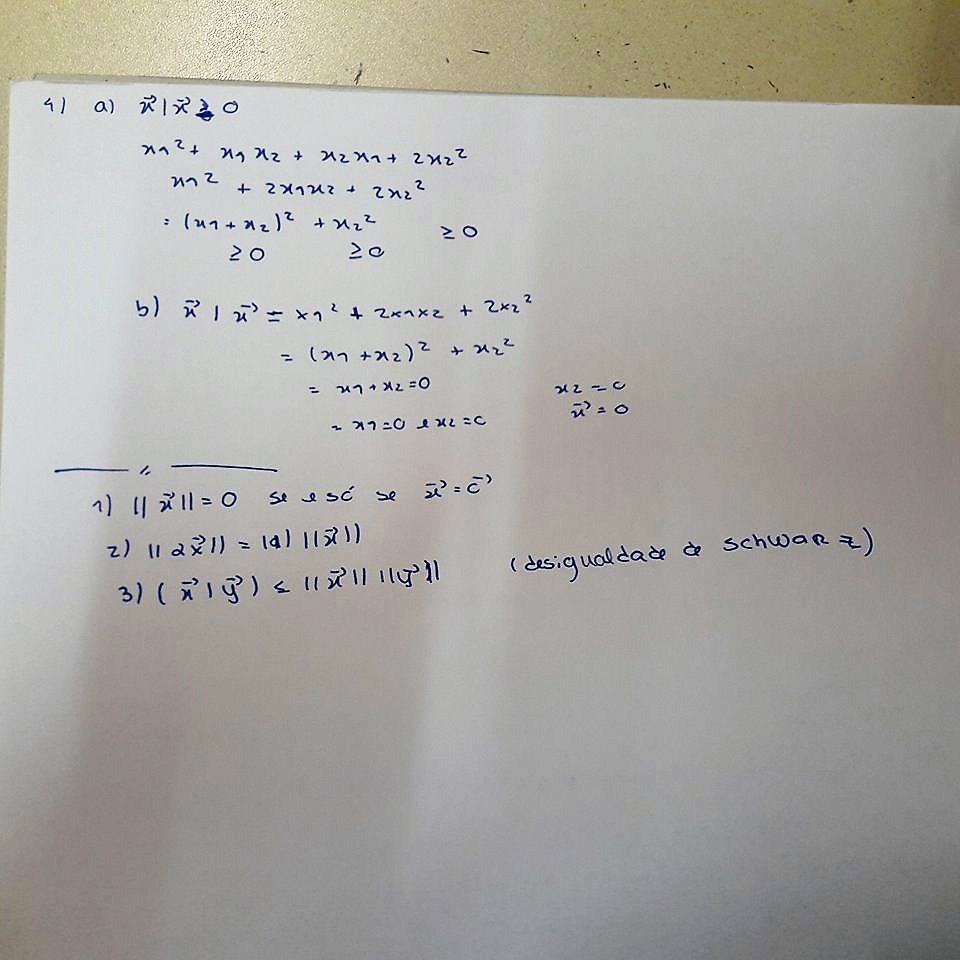 4) a) x⃗ | x⃗ ≥ 0
x1² + x1 x2 + x2 x1 + 2x2²
x1² + 2x1x2 + 2x2²
= (x1 + x2)² + x2² ≥ 0
≥ 0 ≥ 0
b) x⃗ | x⃗ = x1² + 2x1x2 + 2x2²
= (x1 + x2)² + x2²
= x1 + x2 = 0 x2 = 0
= x1 = 0 e x2 = 0 x⃗ = 0
1) || x⃗ || = 0 se e só se x⃗ = 0⃗
2) || αx⃗ || = |α| ||x⃗||
3) ( x⃗ | y⃗ ) ≤ ||x⃗|| ||y⃗|| (desigualdade de schwarz)